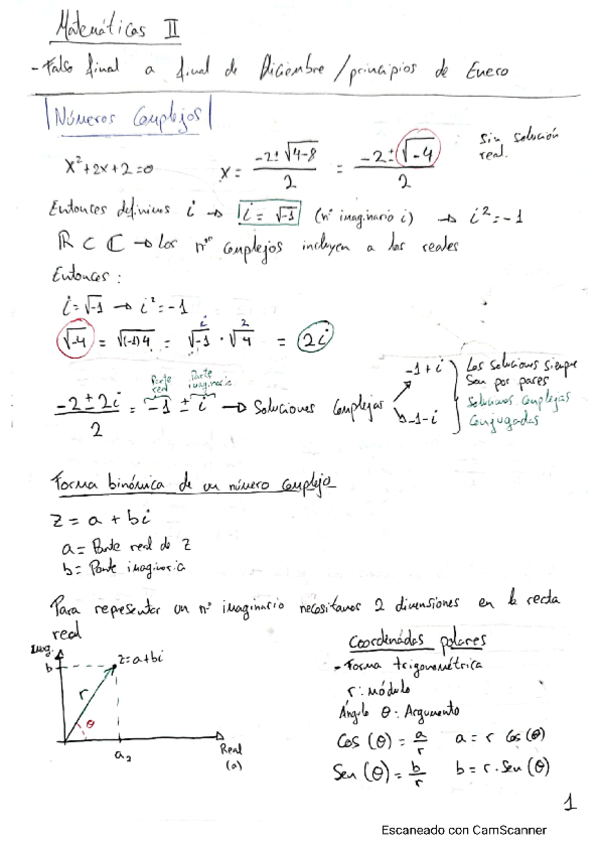 Matemáticas II
- Falso final a final de Diciembre / principios de Enero
Números Complejos
x²+2x+2=0 x = (-2±√(4-8))/2 = (-2±√-4)/2 Sin solución real.
Entonces definimos i → i = √-1 (nº imaginario i) → i² = -1
ℝ ⊂ ℂ → Los nºs complejos incluyen a los reales
Entonces:
i = √-1 → i² = -1
√-4 = √(-1)4 = √-1 · √4 = 2i
i 2
Parte real Parte imaginaria
(-2±2i)/2 = -1 ± i → Soluciones Complejas
-1+i
-1-i
Las soluciones siempre
son por pares
soluciones complejas
conjugadas
Forma binómica de un número complejo
z = a + bi
a = Parte real de z
b = Parte imaginaria
Para representar un nº imaginario necesitamos 2 dimensiones en la recta
real
Imag.
b
z=a+bi
r
θ
a₂
Real
(a)
Coordenadas polares
- Forma trigonométrica
r: módulo
Ángulo θ: Argumento
Cos (θ) = a/r a = r Cos (θ)
Sen (θ) = b/r b = r · Sen (θ)
1
Escaneado con CamScanner